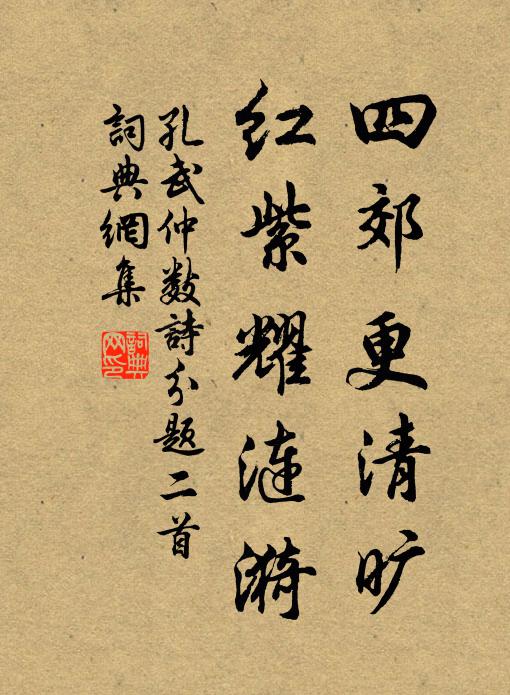 四郊更清旷
红紫耀涟漪
孔武仲数詩分题二首
詞典網集
詞典网印